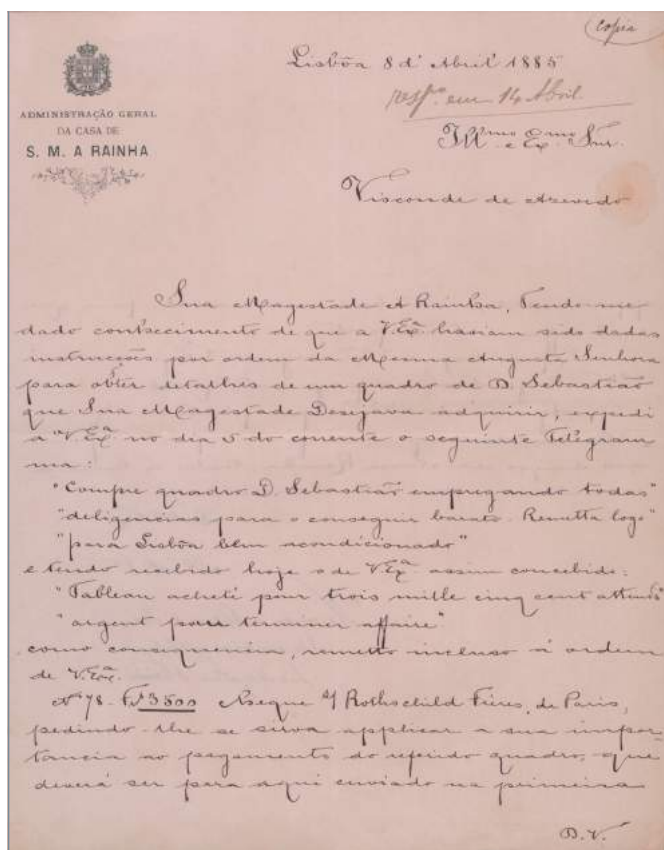 Copia
Lisbôa 8 d'Abril 1885
resp.º em 14 Abril
ADMINISTRAÇÃO GERAL
DA CASA DE
S. M. A RAINHA
Ill.mo e Ex.mo Snr.
Visconde de Azevedo
Sua Magestade A Rainha, Tendo-me
dado conhecimento de que a V. Ex.ª haviam sido dadas
instrucções por ordem da Mesma Augusta Senhora
para obter detalhes de um quadro de D. Sebastião
que Sua Magestade Desejava adquirir, expedi
a V. Ex.ª no dia 5 do corrente o seguinte Telegram
ma:
"Compre quadro D. Sebastião empregando todas"
"deligencias para o conseguir barato. Remetta logo"
"para Lisbôa bem acondicionado"
e tendo recebido hoje o de V. Ex.ª assim concebido:
"Tableau acheté pour trois mille cinq cent attends"
"argent pour terminer affaire"
como consequencia, remetto incluso á ordem
de V. Ex.ª
Nº 78 - 3500 Cheque Rothschild Frères, de Paris,
pedindo-lhe se sirva applicar a sua impor
tancia ao pagamento do referido quadro, que
deverá ser para aqui enviado na primeira